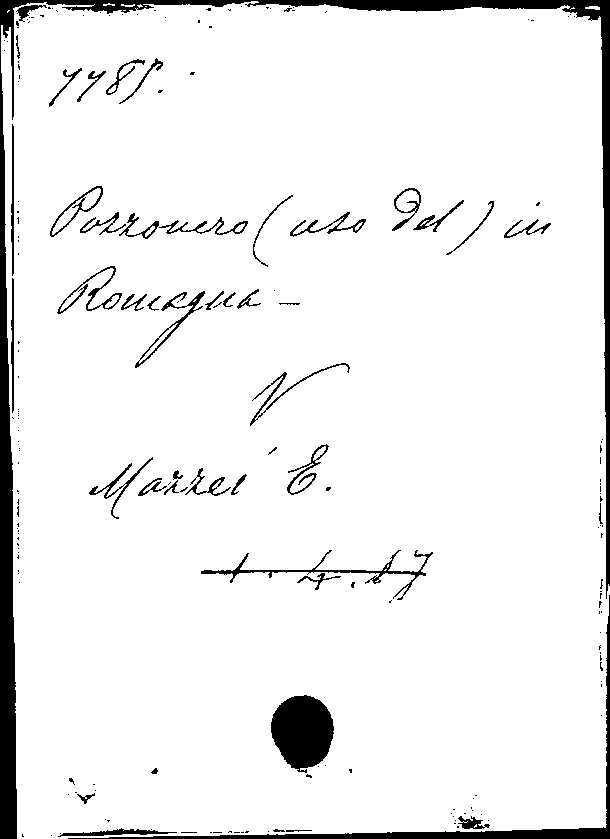 7785.
Pozzonero (uso del) in
Romagna -
V
Mazzei E.
1.4.17